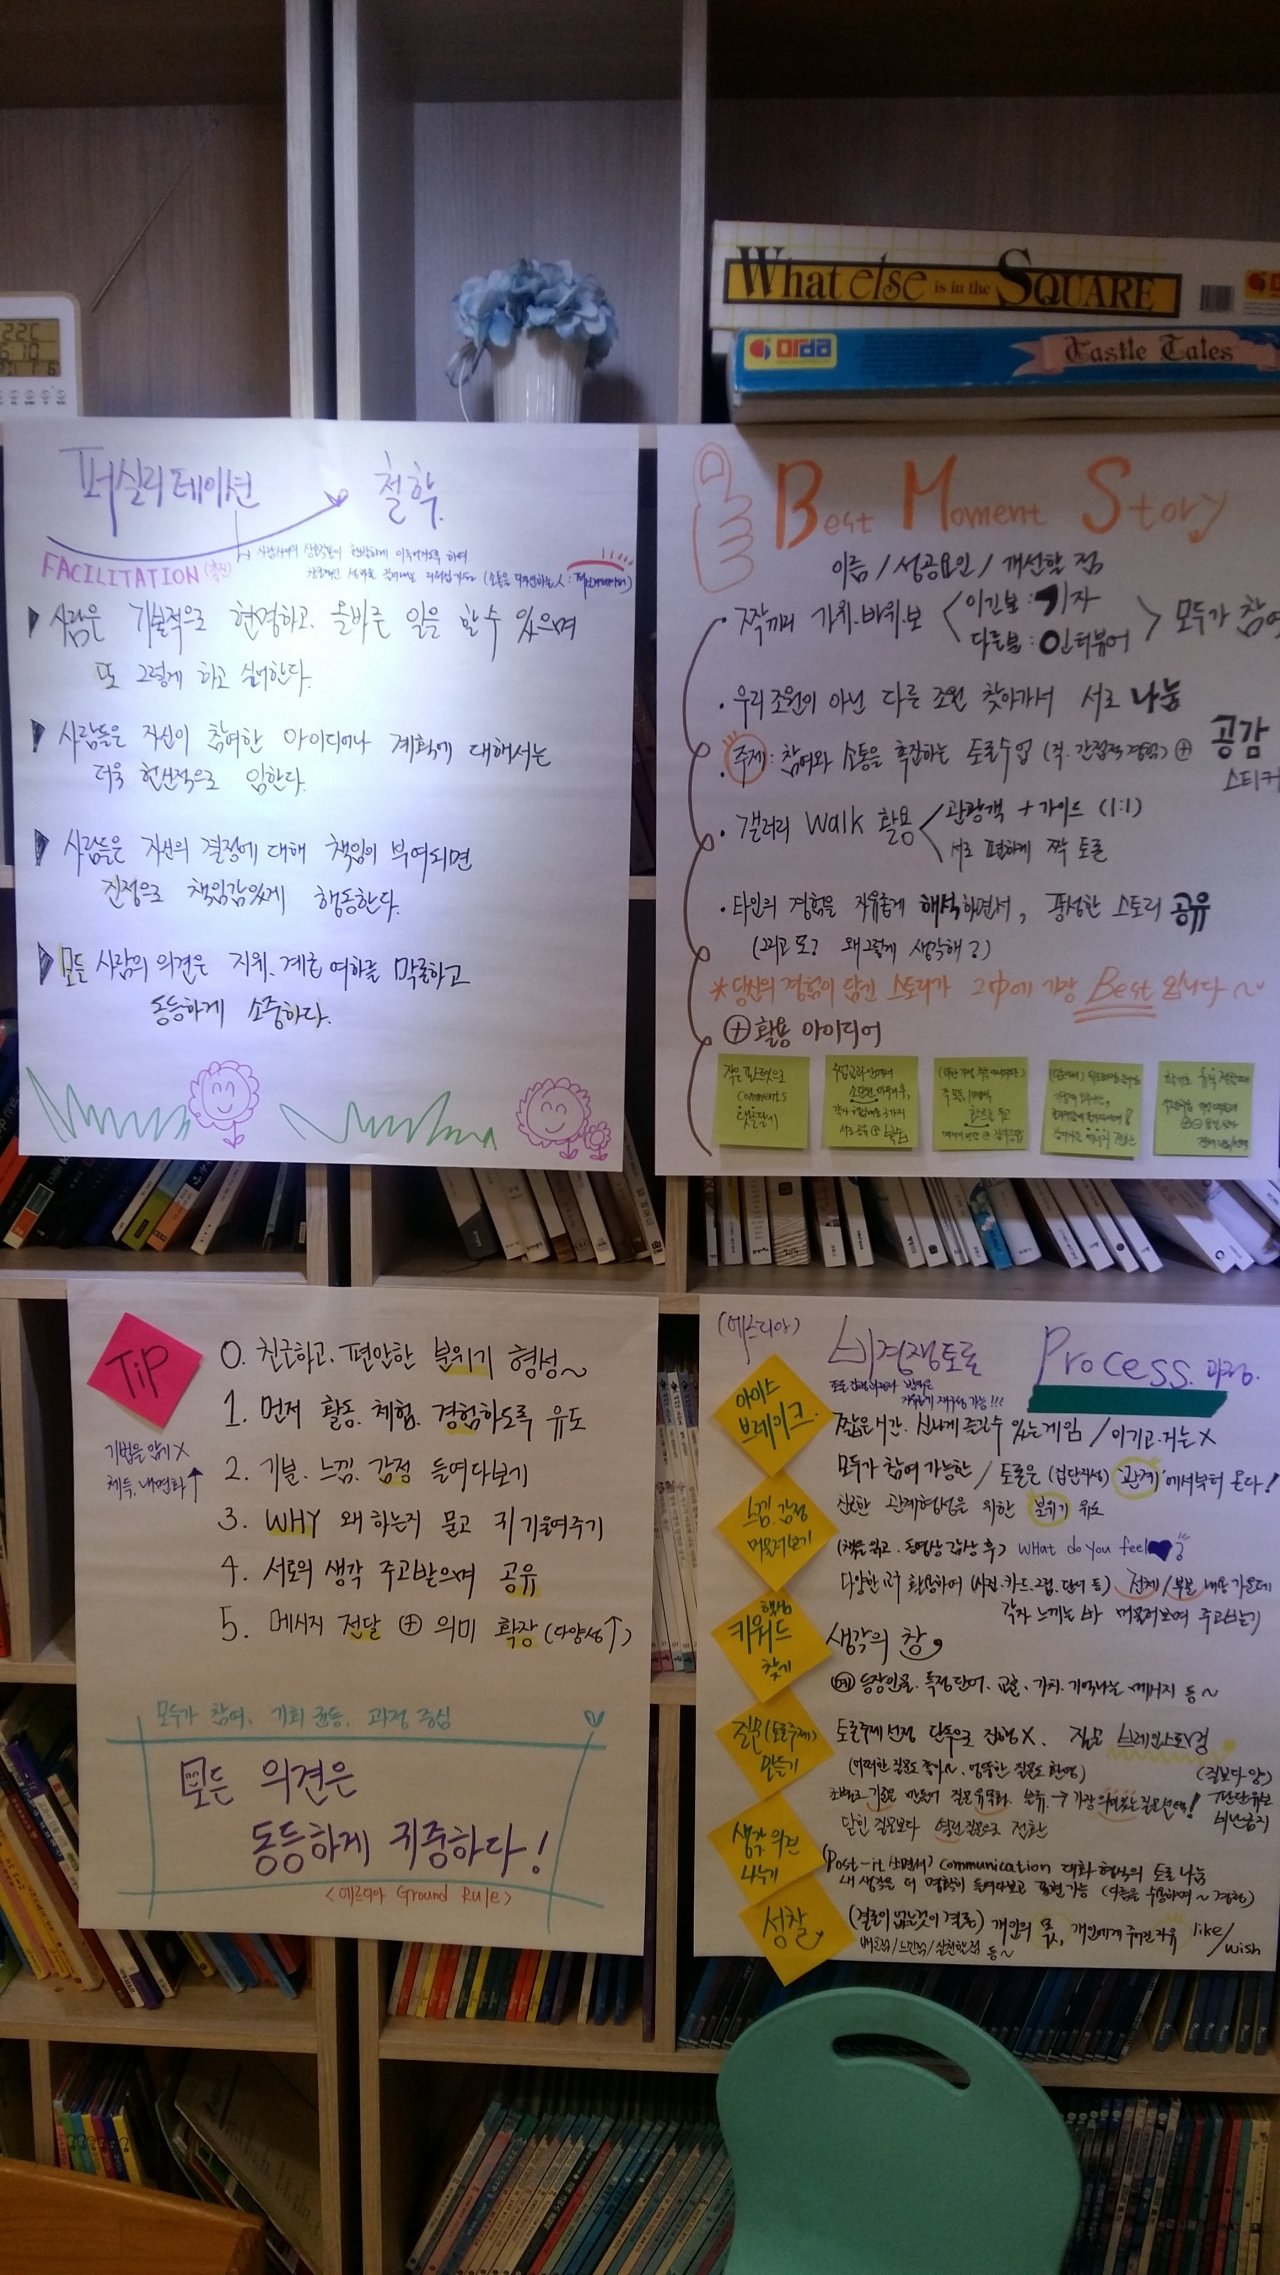 What else is in the SQUARE
Orda
Castle Tales
퍼실리테이션 → 철학
FACILITATION (촉진)
사람은 기본적으로 현명하고, 올바른 일을 할 수 있으며
또 그렇게 하고 싶어한다.
사람들은 자신이 참여한 아이디어나 계획에 대해서는
더욱 헌신적으로 임한다.
사람들은 자신의 결정에 대해 책임이 부여되면
진정으로 책임감있게 행동한다.
모든 사람의 의견은 지위, 계층 여하를 막론하고
동등하게 소중하다.
Best Moment Story
이름 / 성공요인 / 개선할 점
· 짝끼리 가위·바위·보 < 이긴분 : 기자
다른분 : 인터뷰어 > 모두가 참여
· 우리 조원이 아닌 다른 조원 찾아가서 서로 나눔
· 주제 : 참여와 소통을 촉진하는 토론수업 (직·간접적 경험) ⊕ 공감
스티커
· 갤러리 Walk 활용 < 관광객 + 가이드 (1:1)
서로 편하게 짝 토론
· 타인의 경험을 자유롭게 해석하면서, 풍성한 스토리 공유
(그리고 또? 왜 그렇게 생각해?)
* 당신의 경험이 담긴 스토리가 그 中에 가장 Best 입니다 ~
⊕ 활용 아이디어
작은 포스트잇으로
comments
댓글달기
TiP
기법을 암기 X
체득, 내면화 ↑
0. 친근하고, 편안한 분위기 형성~
1. 먼저 활동, 체험, 경험하도록 유도
2. 기분, 느낌, 감정 들여다보기
3. WHY 왜 하는지 묻고 귀 기울여주기
4. 서로의 생각 주고받으며 공유
5. 메시지 전달 ⊕ 의미 확장 (다양성↑)
모두가 참여, 기회 균등, 과정 중심
모든 의견은
동등하게 귀중하다!
<에르디아 Ground Rule>
(에르디아) 비경쟁토론 Process. 과정.
자유롭게 재구성 가능!!!
아이스
브레이크.
짧은시간, 신나게 즐길수 있는 게임 / 이기고·지는 X
모두가 참여 가능한 / 토론은 (집단지성) '관계'에서부터 온다!
친근한 관계형성을 위한 분위기 유도
느낌, 감정
머물러보기
(책을 읽고, 동영상 감상 후) What do you feel ?
다양한 도구 활용하여 (사진, 카드, 그림, 단어 등) 전체/부분 내용 가운데
각자 느끼는 바 머물러보며 주고받기
핵심
키워드
찾기
생각의 창
예) 등장인물, 특정단어, 교훈, 가치, 기억나는 메시지 등~
질문(토론주제)
만들기
토론주제 선정 단독으로 진행 X, 질문 브레인스토밍
(어떠한 질문도 좋아~, 엉뚱한 질문도 환영)
(질보다 양)
판단유보
비난금지
닫힌 질문보다 열린 질문으로 전환
생각, 의견
나누기
(Post-it 쓰면서) communication 대화 형식의 토론 나눔
내 생각을 더 명확히 들여다보고 표현 가능
성찰
(결론이 없는것이 결론) 개인의 몫, 개인에게 주어진 자유 like/
wish
배운점/느낀점/실천할점 등~